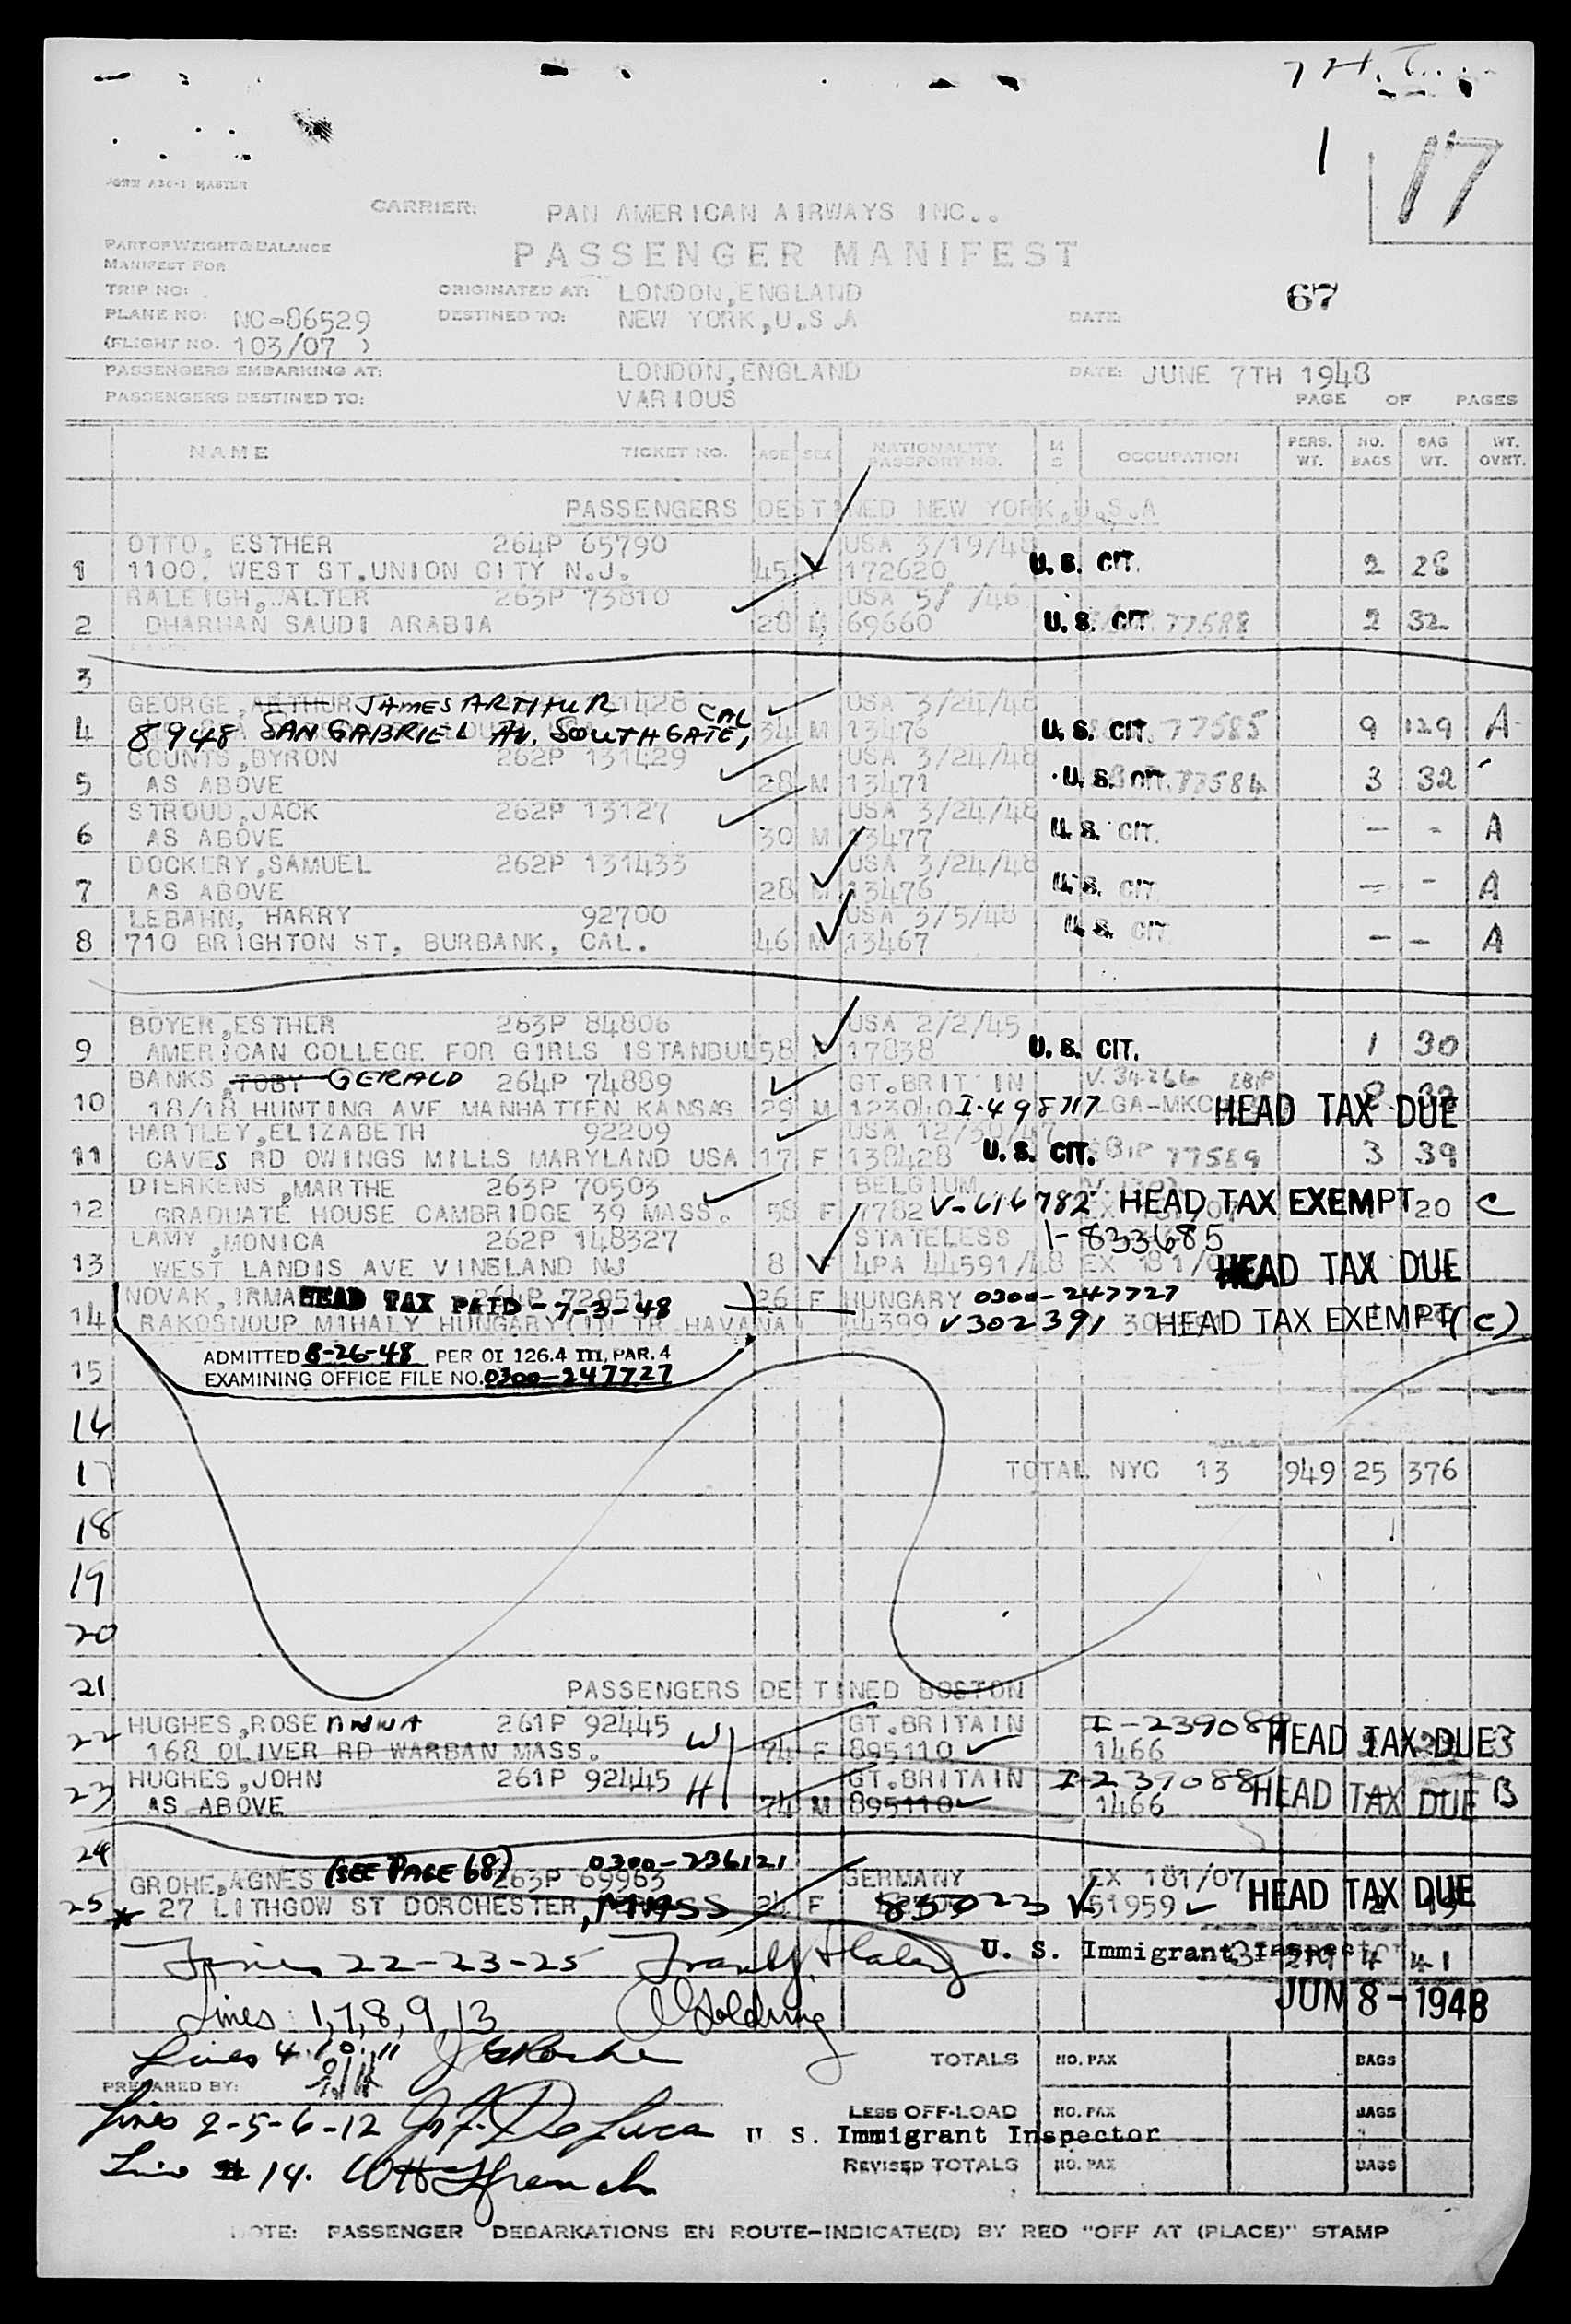 1
17
FORM A30-1 MASTER
CARRIER: PAN AMERICAN AIRWAYS INC..
PART OF WEIGHT & BALANCE
MANIFEST FOR
PASSENGER MANIFEST
TRIP NO: ORIGINATED AT: LONDON,ENGLAND 67
PLANE NO: NC-86529 DESTINED TO: NEW YORK,U.S.A DATE:
(FLIGHT NO. 103/07 )
PASSENGERS EMBARKING AT: LONDON,ENGLAND DATE: JUNE 7TH 1948
PASSENGERS DESTINED TO: VARIOUS PAGE OF PAGES
NAME TICKET NO. AGE SEX NATIONALITY PASSPORT NO. M S OCCUPATION PERS. WT. NO. BAGS BAG WT. WT. OVNT.
PASSENGERS DESTINED NEW YORK,U.S.A
OTTO, ESTHER 264P 65790 USA 3/19/48
1 1100. WEST ST.UNION CITY N.J. 45 172620 U. S. CIT. 2 28
RALEIGH, WALTER 263P 73810 USA 5/ /46
2 DHARHAN SAUDI ARABIA 28 M 69660 U. S. CIT. 77588 2 32
3
GEORGE, ARTHUR JAMES ARTHUR 131428 USA 3/24/48
4 8948 SAN GABRIEL AV. SOUTHGATE, CAL 34 M 13476 U. S. CIT. 77585 9 129 A
COUNTS,BYRON 262P 131429 USA 3/24/48
5 AS ABOVE 28 M 13471 U. S. CIT. 77584 3 32
STROUD,JACK 262P 13127 USA 3/24/48
6 AS ABOVE 30 M 13477 U. S. CIT. - - A
DOCKERY,SAMUEL 262P 131433 USA 3/24/48
7 AS ABOVE 28 M 13476 U. S. CIT - - A
LEBAHN, HARRY 92700 USA 3/5/48
8 710 BRIGHTON ST, BURBANK, CAL. 46 M 13467 U. S. CIT. - - A
BOYER,ESTHER 263P 84806 USA 2/2/45
9 AMERICAN COLLEGE FOR GIRLS ISTANBUL 58 17838 U. S. CIT. 1 30
BANKS, TOBY GERALD 264P 74889 GT.BRITAIN V. 34266
10 18/18 HUNTING AVE MANHATTEN KANSAS 29 M 123040 I-498717 LGA-MKC HEAD TAX DUE
HARTLEY,ELIZABETH 92209 USA 12/30/47
11 CAVES RD OWINGS MILLS MARYLAND USA 17 F 138428 U. S. CIT. 77589 3 39
DIERKENS ,MARTHE 263P 70503 BELGIUM
12 GRADUATE HOUSE CAMBRIDGE 39 MASS. 58 F 7782 V-616782 HEAD TAX EXEMPT 20 C
LAMY ,MONICA 262P 148327 STATELESS 1-833685
13 WEST LANDIS AVE VINELAND NJ 8 F 4PA 44591/48 EX 181/07 HEAD TAX DUE
NOVAK, IRMA HEAD TAX PAID-7-3-48 264P 72951 26 F HUNGARY 0300-247727
14 RAKOSNOUP MIHALY HUNGARY(IN TR HAVANA) 44399 V302391 HEAD TAX EXEMPT (C)
ADMITTED 8-26-48 PER OI 126.4 III, PAR. 4
15 EXAMINING OFFICE FILE NO. 0300-247727
16
17 TOTAL NYC 13 949 25 376
18
19
20
21 PASSENGERS DESTINED BOSTON
HUGHES,ROSE ANNA 261P 92445 W GT.BRITAIN I-239089
22 168 OLIVER RD WARBAN MASS. 74 F 895110 1466 HEAD TAX DUE B
HUGHES,JOHN 261P 92445 H GT.BRITAIN I-239088
23 AS ABOVE 74 M 895110 1466 HEAD TAX DUE B
24
GROHE,AGNES (SEE PAGE 68) 263P 69963 0300-236121 GERMANY EX 181/07
25 * 27 LITHGOW ST DORCHESTER, MASS 24 F 835023 V 51959 HEAD TAX DUE
Lines 22-23-25 U. S. Immigrant Inspector 3 4 41
Lines: 1,7,8,9,13 Golding JUN 8 - 1948
Lines 4, 10, 11
TOTALS NO. PAX BAGS
PREPARED BY:
Lines 2-5-6-12 De Luca
LESS OFF-LOAD NO. PAX BAGS
U. S. Immigrant Inspector
Line # 14. French
REVISED TOTALS NO. PAX BAGS
NOTE: PASSENGER DEBARKATIONS EN ROUTE-INDICATE(D) BY RED "OFF AT (PLACE)" STAMP